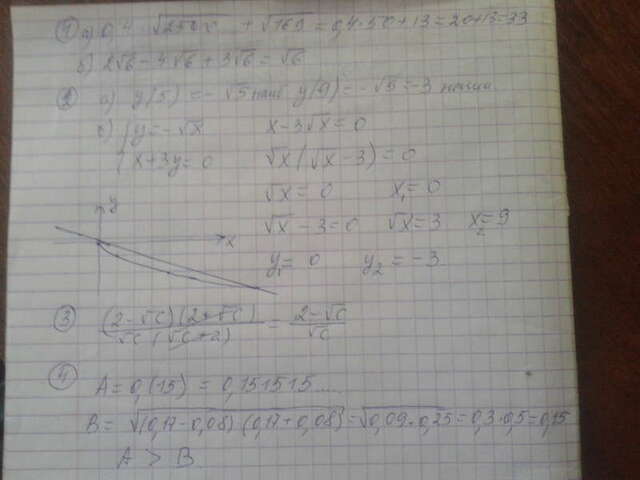 ① а) 0,4 · √2500 + √169 = 0,4·50+13 = 20+13=33
б) 2√6 - 4√6 + 3√6 = √6
② а) y(5) = -√5 наиб y(9) = -√9 = -3 наим
б) { y = -√x
x+3y = 0
x - 3√x = 0
√x (√x - 3) = 0
√x = 0 x₁ = 0
√x - 3 = 0 √x = 3 x₂ = 9
y₁ = 0 y₂ = -3
y
x
③ (2-√c)(2+√c) / √c(√c+2) = 2-√c / √c
④ A = 0,(15) = 0,151515....
B = √(0,17-0,08)(0,17+0,08) = √0,09·0,25 = 0,3·0,5=0,15
A > B